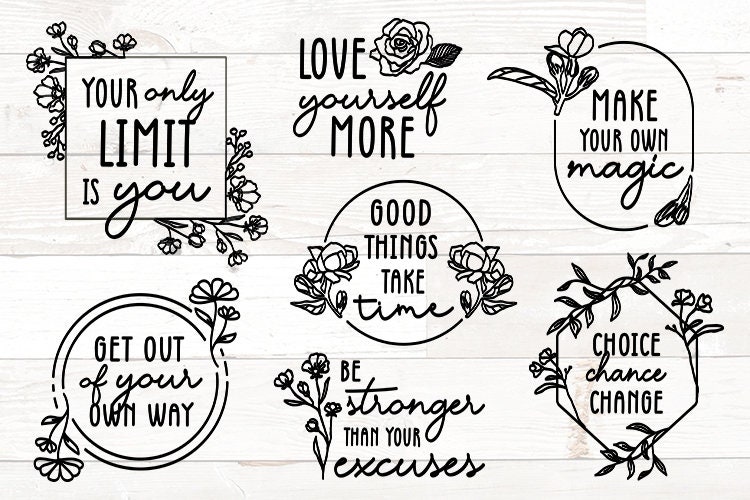 YOUR only
LIMIT
IS you
LOVE
yourself
MORE
MAKE
YOUR OWN
magic
GOOD
THINGS
TAKE
time
GET OUT
of your
OWN WAY
BE
stronger
THAN YOUR
excuses
CHOICE
chance
CHANGE